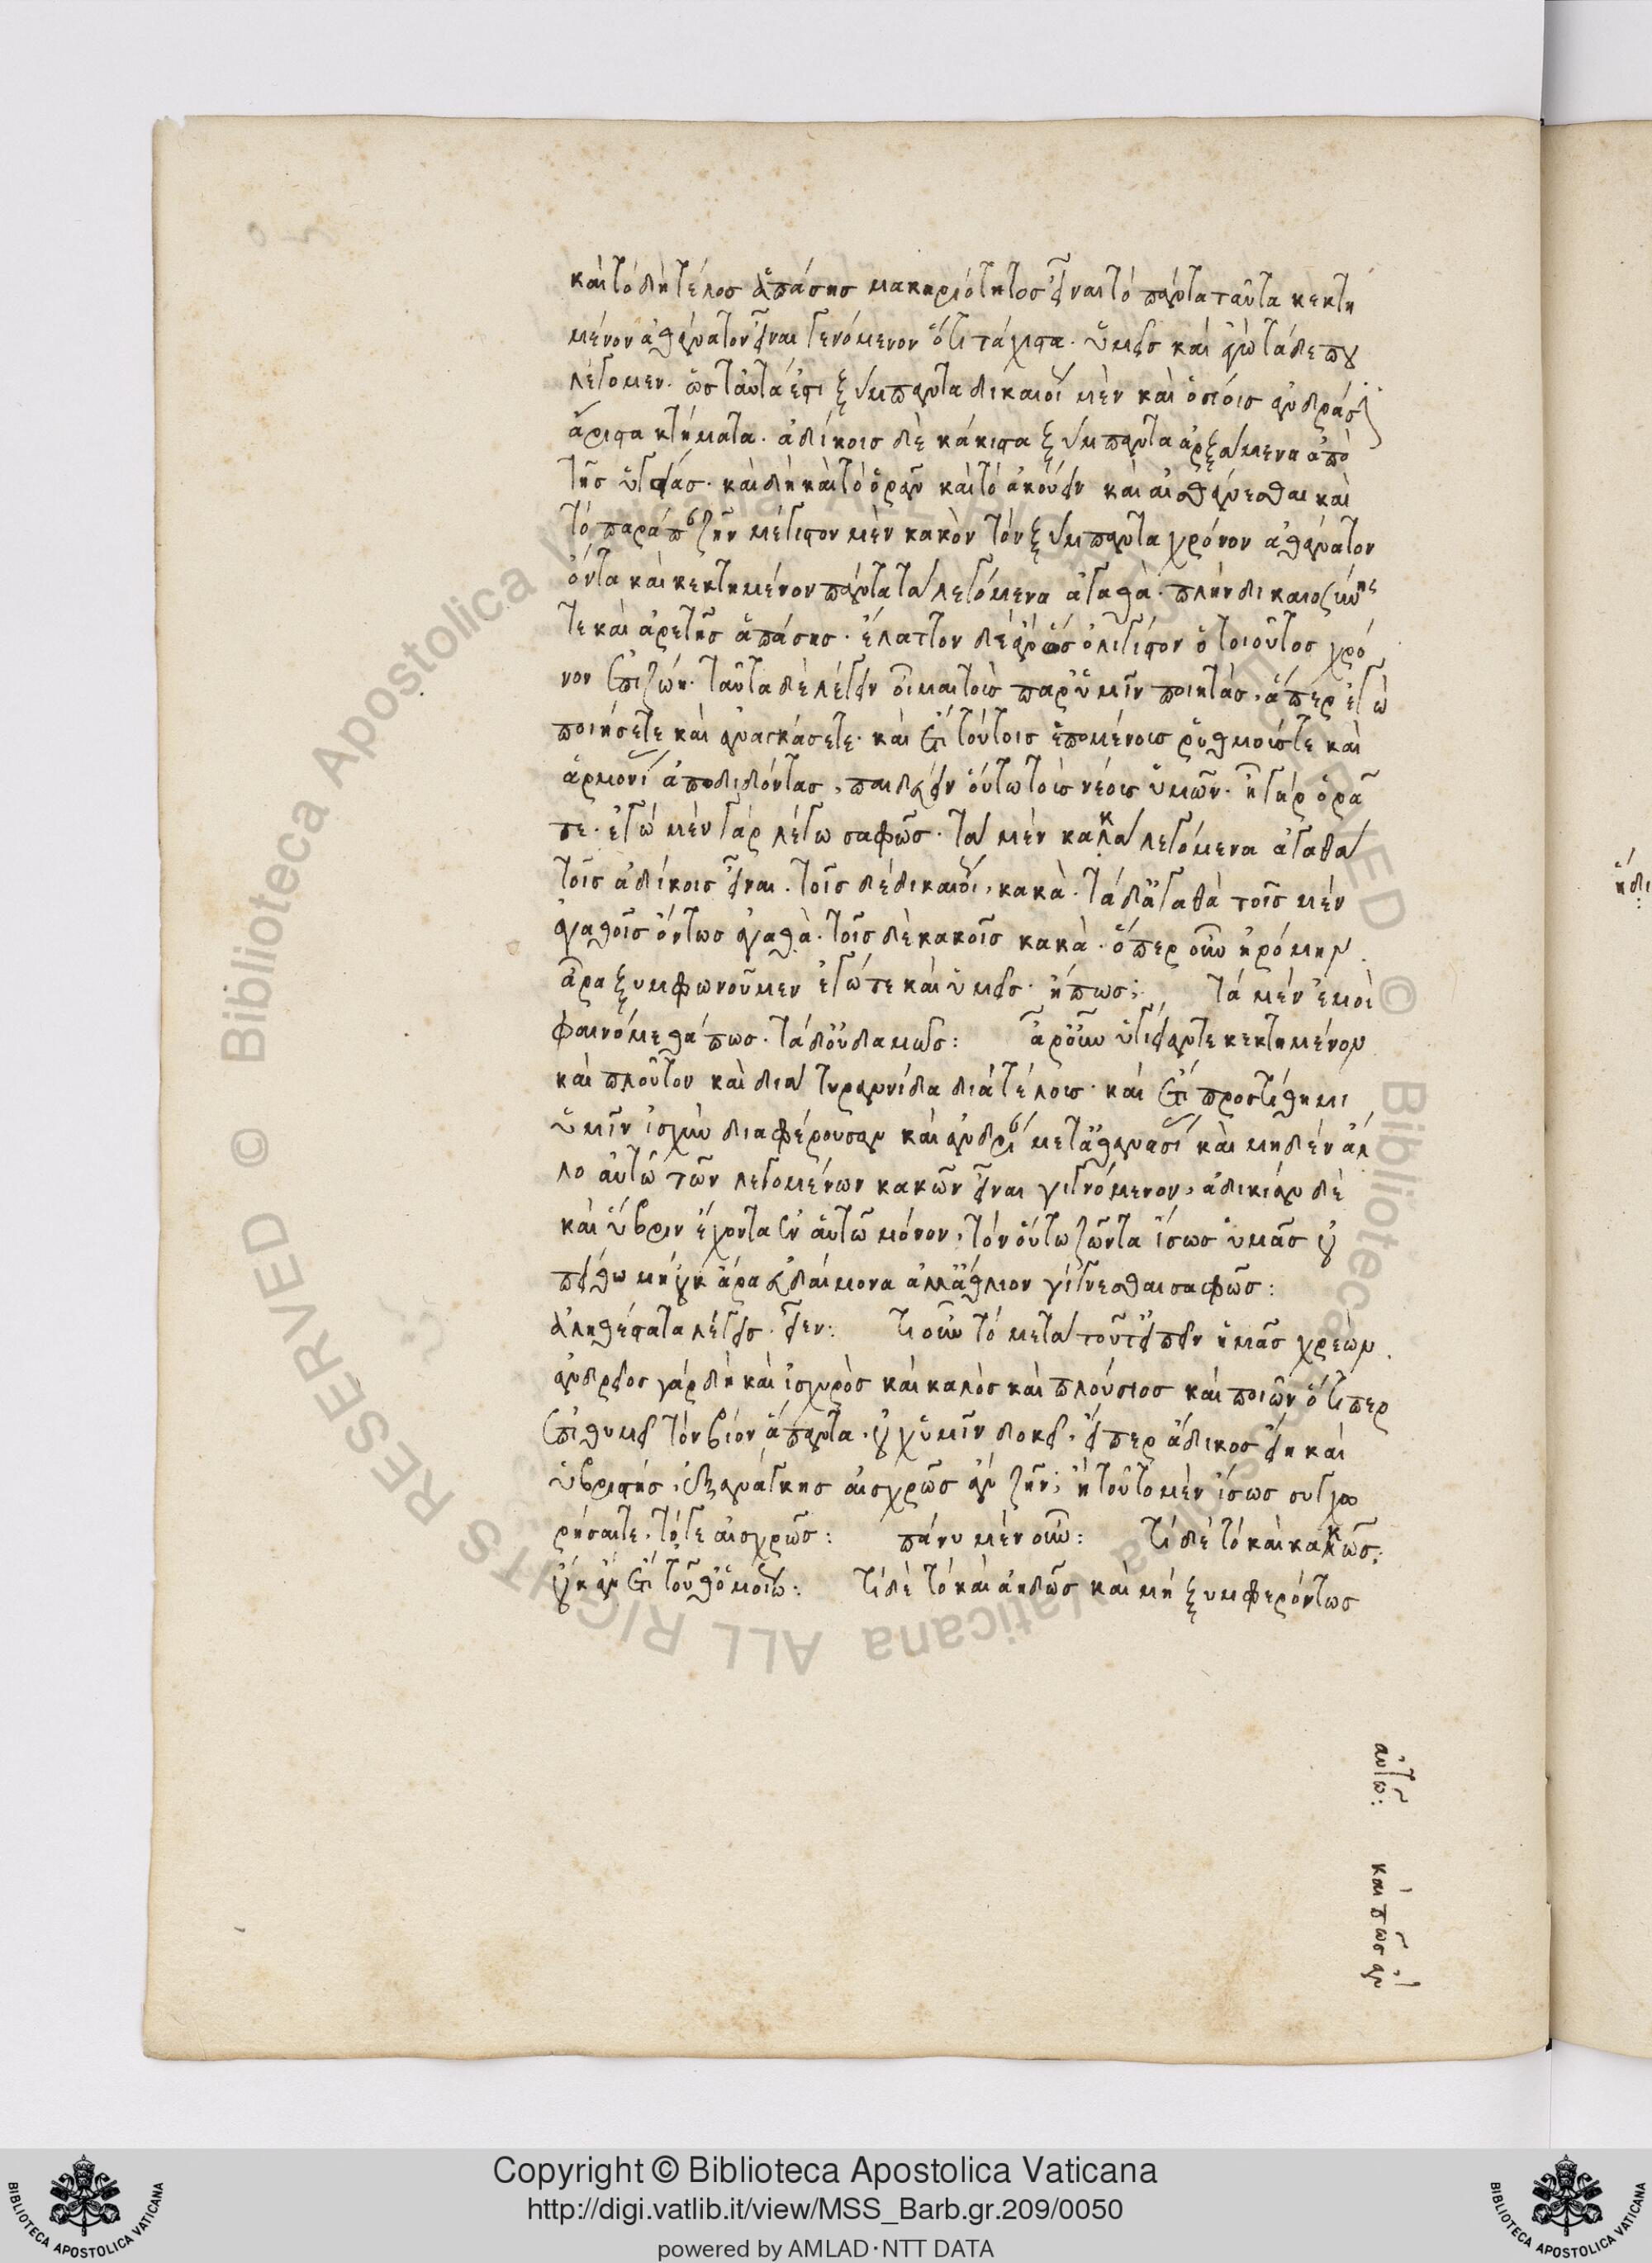 καὶ τὸ δὴ τέλος ἁπάσης μακαριότητος εἶναι τὸ πάντα ταῦτα κεκτη
μένον ἀθάνατον εἶναι γενόμενον ὅτι τάχιστα. ὑμεῖς καὶ ἐγὼ τάδε που
λέγομεν. ὡς ταῦτά ἐστι ξύμπαντα δικαίοις μὲν καὶ ὁσίοις ἀνδράσι
ἄριστα κτήματα. ἀδίκοις δὲ κάκιστα ξύμπαντα ἀρξάμενα ἀπὸ
τῆς ὑγιείας. καὶ δὴ καὶ τὸ ὁρᾶν καὶ τὸ ἀκούειν καὶ αἰσθάνεσθαι καὶ
τὸ παράπαν ζῆν μέγιστον μὲν κακὸν τὸν ξύμπαντα χρόνον ἀθάνατον
ὄντα καὶ κεκτημένον πάντα τὰ λεγόμενα ἀγαθὰ. πλὴν δικαιοσύνης
τε καὶ ἀρετῆς ἁπάσης. ἔλαττον δὲ ἂν ὡς ὀλίγιστον ὁ τοιοῦτος χρό
νον ἐπιζώη. ταῦτα δὲ λέγειν οἶμαι τοὺς παρ' ὑμῖν ποιητάς, ἅπερ ἐγὼ
ποιήσετε καὶ ἀναγκάσετε. καὶ ἔτι τούτοις ἑπομένοις ῥυθμούς τε καὶ
ἁρμονίας ἀποδιδόντας, παιδεύειν οὕτω τοὺς νέους ὑμῶν. ἦ γὰρ ὁρᾶ
τε. ἐγὼ μὲν γὰρ λέγω σαφῶς. τὰ μὲν κακὰ λεγόμενα ἀγαθὰ
τοῖς ἀδίκοις εἶναι. τοῖς δὲ δικαίοις, κακὰ. τὰ δ' ἀγαθὰ τοῖς μὲν
ἀγαθοῖς ὄντως ἀγαθὰ. τοῖς δὲ κακοῖς κακὰ. ὅπερ οὖν ἠρόμην.
ἆρα ξυμφωνοῦμεν ἐγώ τε καὶ ὑμεῖς. ἢ πως; τὰ μὲν ἐμοὶ
φαινόμεθά πως. τὰ δ' οὐδαμῶς: ἆρ' οὖν ὑγίειάν τε κεκτημένον
καὶ πλοῦτον καὶ διὰ τυραννίδα διὰ τέλους. καὶ ἔτι προστίθημι
ὑμῖν ἰσχὺν διαφέρουσαν καὶ ἀνδρείαν μετ' ἀθανασίας καὶ μηδὲν ἄλ
λο αὐτῷ τῶν λεγομένων κακῶν εἶναι γιγνόμενον, ἀδικίαν δὲ
καὶ ὕβριν ἔχοντα ἐν αὑτῷ μόνον, τὸν οὕτω ζῶντα ἴσως ὑμᾶς οὐ
πείθω μὴ οὐκ ἄρα εὐδαίμονα ἀλλ' ἄθλιον γίγνεσθαι σαφῶς:
ἀληθέστατα λέγεις. εἶεν: τί οὖν τὸ μετὰ τοῦτ' εἰπεῖν ἡμᾶς χρεὼν.
ἀνδρεῖος γὰρ δὴ καὶ ἰσχυρὸς καὶ καλὸς καὶ πλούσιος καὶ ποιῶν ὅ τι περ
ἐπιθυμεῖ τὸν βίον ἅπαντα. οὐχ ὑμῖν δοκεῖ, εἴπερ ἄδικος εἴη καὶ
ὑβριστής, ἐξ ἀνάγκης αἰσχρῶς ἂν ζῆν; ἢ τοῦτο μὲν ἴσως συγχω
ρήσαιτε, τό γε αἰσχρῶς: πάνυ μὲν οὖν: τί δὲ τὸ καὶ κακῶς;
οὐκ ἂν ἔτι τοῦθ' ὁμοίως: τί δὲ τὸ καὶ ἀηδῶς καὶ μὴ ξυμφερόντως
αὑτῷ: καὶ πῶς ἂν